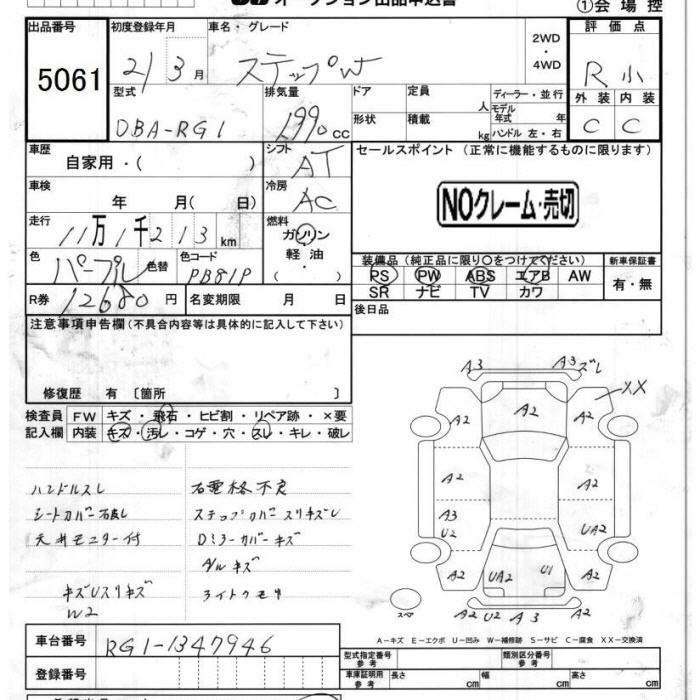 オークション出品申込書
①会場控
出品番号 初度登録年月 車名・グレード 2WD 評価点
5061 21 3月 ステップW ・4WD R 小
型式 排気量 ドア 定員 人 ディーラー・並行 外装 内装
DBA-RG1 1990cc 形状 積載 kg モデル年式 年 ハンドル 左・右 C C
車歴 自家用・( ) シフト AT セールスポイント (正常に機能するものに限ります)
車検 年 月( 日) 冷房 AC
NOクレーム・売切
走行 11万1千213km 燃料 ガソリン
軽油
色 パープル 色替 色コード PB81P ・
装備品 (純正品に限り○をつけてください) 新車保証書
PS PW ABS エアB AW 有・無
R券 12680円 名変期限 月 日 SR ナビ TV カワ
注意事項申告欄(不具合内容等は具体的に記入して下さい) 後日品
修復歴 有 〔箇所 〕
検査員 FW キズ・飛石・ヒビ割・リペア跡・×要
記入欄 内装 キズ・汚レ・コゲ・穴・スレ・キレ・破レ
A3 A3 ズレ
XX
A2 A2 A2
A2 A2
A3
U2 UA2
A2 UA2 U1 A2
スペア A2 U2 A3 A2
ハンドルスレ
シートカバー
天井モニター付
キズUスリキズ
W2
右電格不良
ステップカバースリキズレ
Dミラーカバーキズ
Aルキズ
ライトクモリ
A-キズ E-エクボ U-凹み W-補修跡 S-サビ C-腐食 XX-交換済
車台番号 RG1-1347946
型式指定番号 参考 類別区分番号 参考
登録番号 車庫証明用 参考 長さ cm 幅 cm 高さ cm